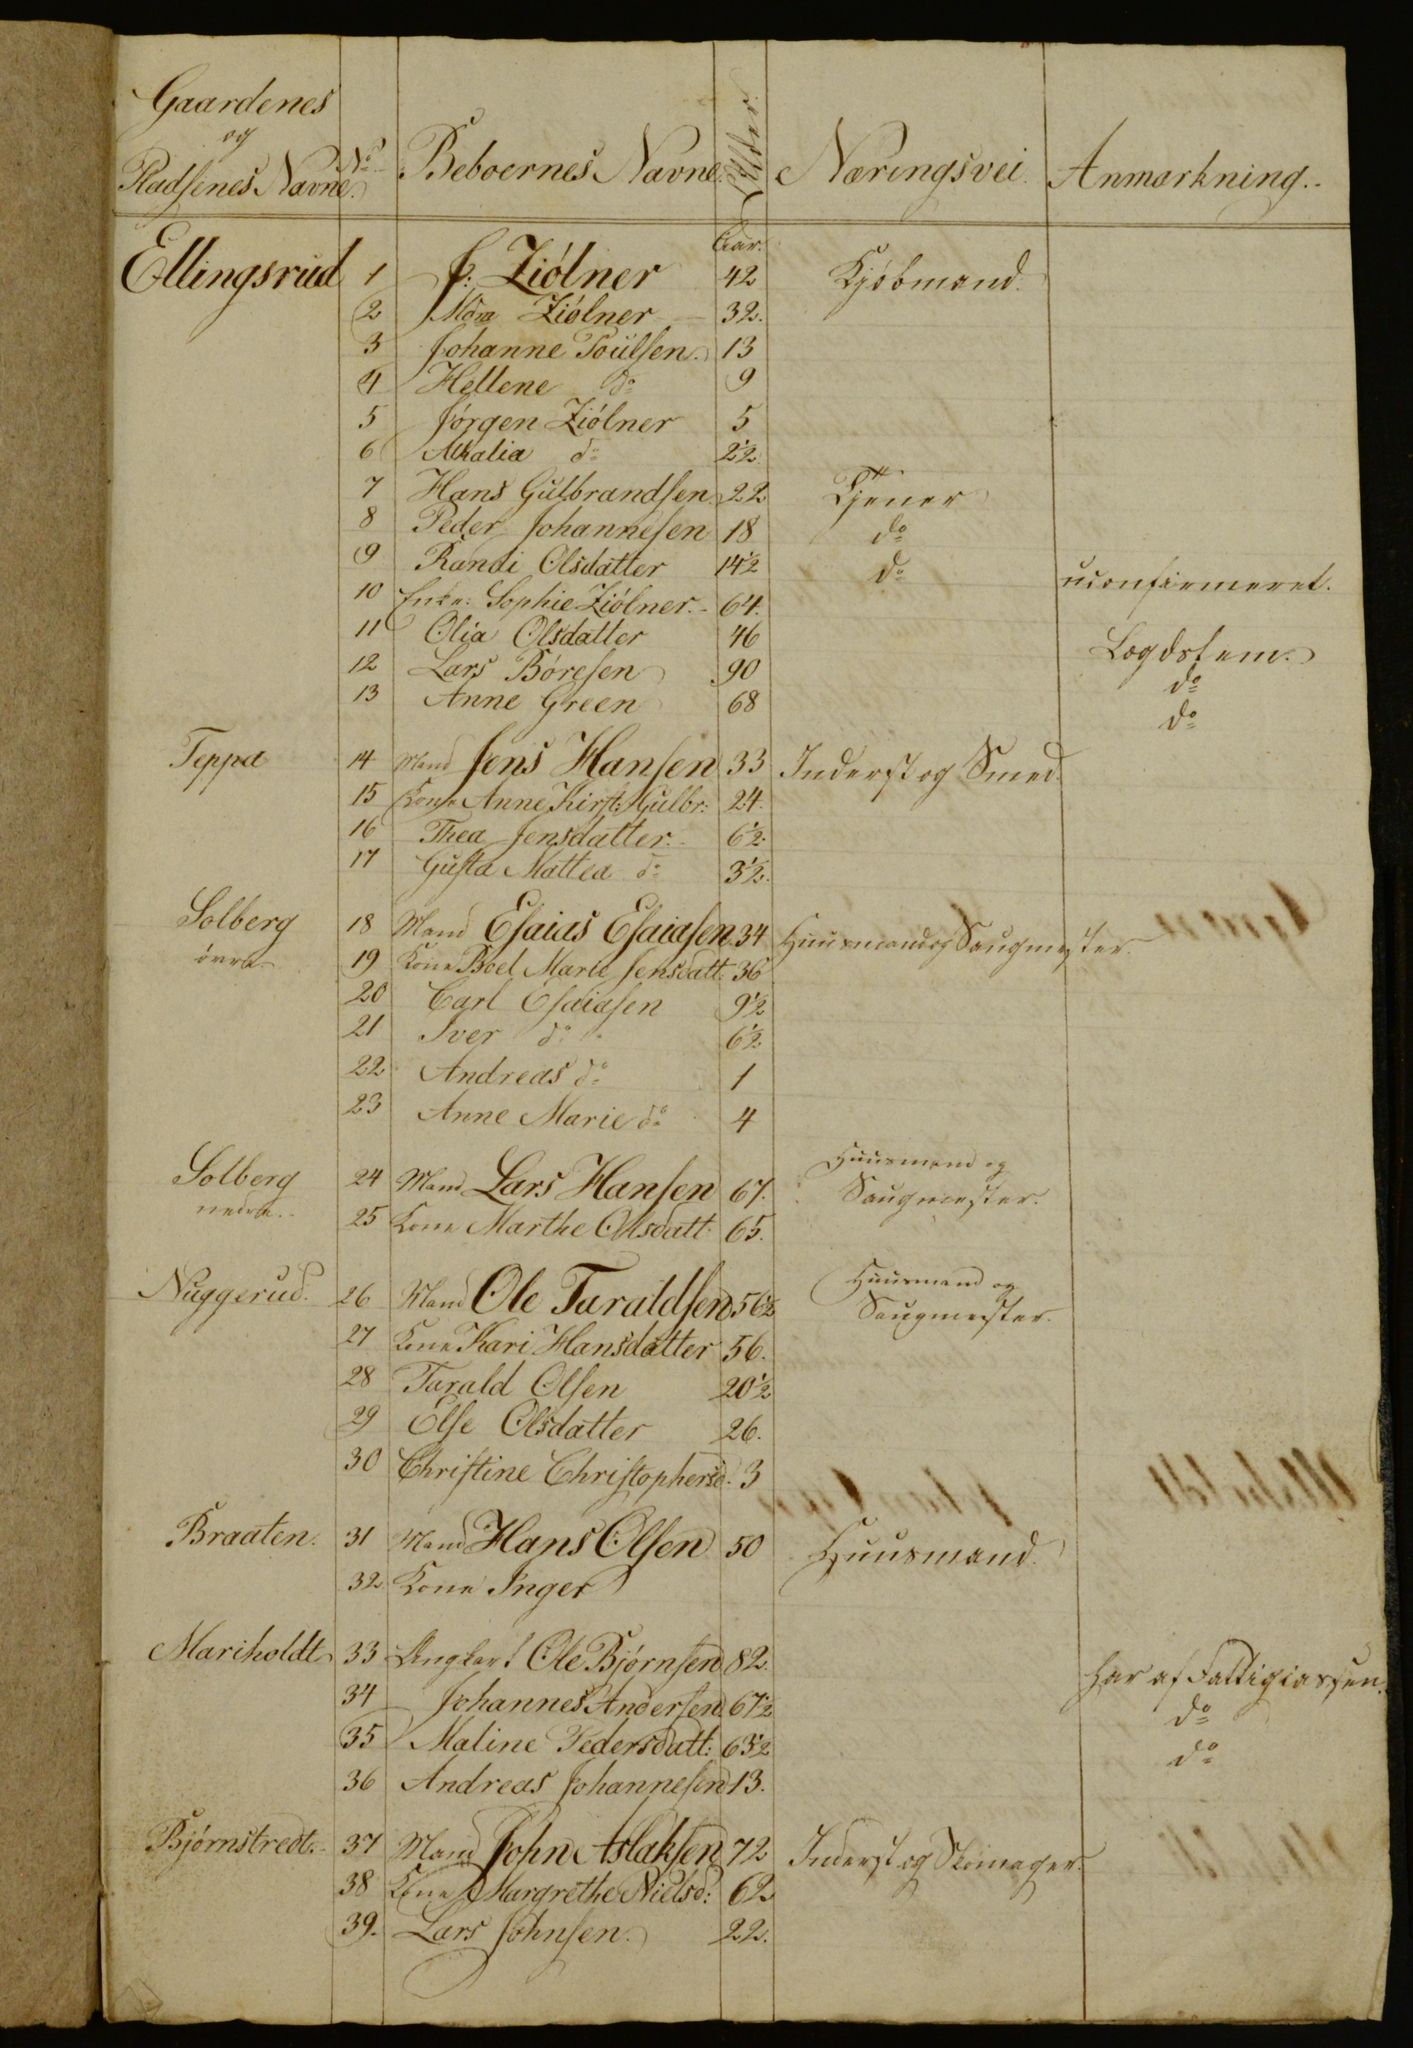 Gaardenes
og
Pladsenes Navne. No Beboernes Navne. Alder. Næringsvei. Anmærkning.
Aar.
Ellingsrud 1 J: Ziölner 42 Kjöbmand.
2 Mdm Ziölner 32.
3 Johanne Poulsen. 13
4 Hellene do 9
5 Jörgen Ziölner 5
6 Athalia do 2½.
7 Hans Gulbrandsen 22 Tjener
8 Peder Johannesen 18 do
9 Randi Olsdatter 14½ do uconfirmeret.
10 Enke: Sophie Ziölner. 64.
11 Olia Olsdatter 46 Lægdslem.
12 Lars Böresen 90 do
13 Anne Green 68 do
Teppa 14 Mand Jens Hansen 33 Inderst og Smed.
15 Kone Anne Kirst: Gulbr: 24.
16 Thea Jensdatter. 6½.
17 Gusta Mattea do 3½.
Solberg 18 Mand Esaias Esaiasen 34 Huusmand og Saugmester.
övre 19 Kone Boel Marie Jensdatt. 36
20 Carl Esaiasen 9½
21 Iver do 6½
22 Andreas do 1
23 Anne Marie do 4
Solberg 24 Mand Lars Hansen 67. Huusmand og Saugmester.
nedre. 25 Kone Marthe Olsdatt. 65.
Nuggerud. 26 Mand Ole Taraldsen 56½ Huusmand og Saugmester.
27 Kone Kari Hansdatter 56.
28 Tarald Olsen 20½
29 Else Olsdatter 26.
30 Christine Christophersd. 3
Braaten. 31 Mand Hans Olsen 50 Huusmand.
32 Kone Inger
Mariholdt 33 Ungkarl Ole Bjørnsen 82. har af Fattigkassen.
34 Johannes Andersen 67½ do
35 Maline Pedersdatt: 65½ do
36 Andreas Johannesen 13.
Bjørnstredt. 37 Mand John Aslaksen 72 Inderst og Skomager.
38 Kone Margrethe Nielsd: 62
39. Lars Johnsen. 22.